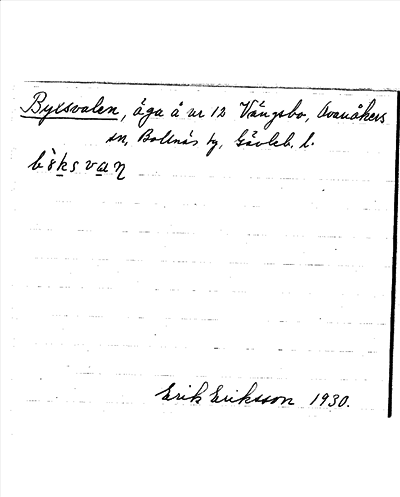 Byxsvalen, äga å nr 12 Vängsbo, Ovanåkers
sn, Bollnäs tg, Gävleb. l.
Erik Eriksson 1930.